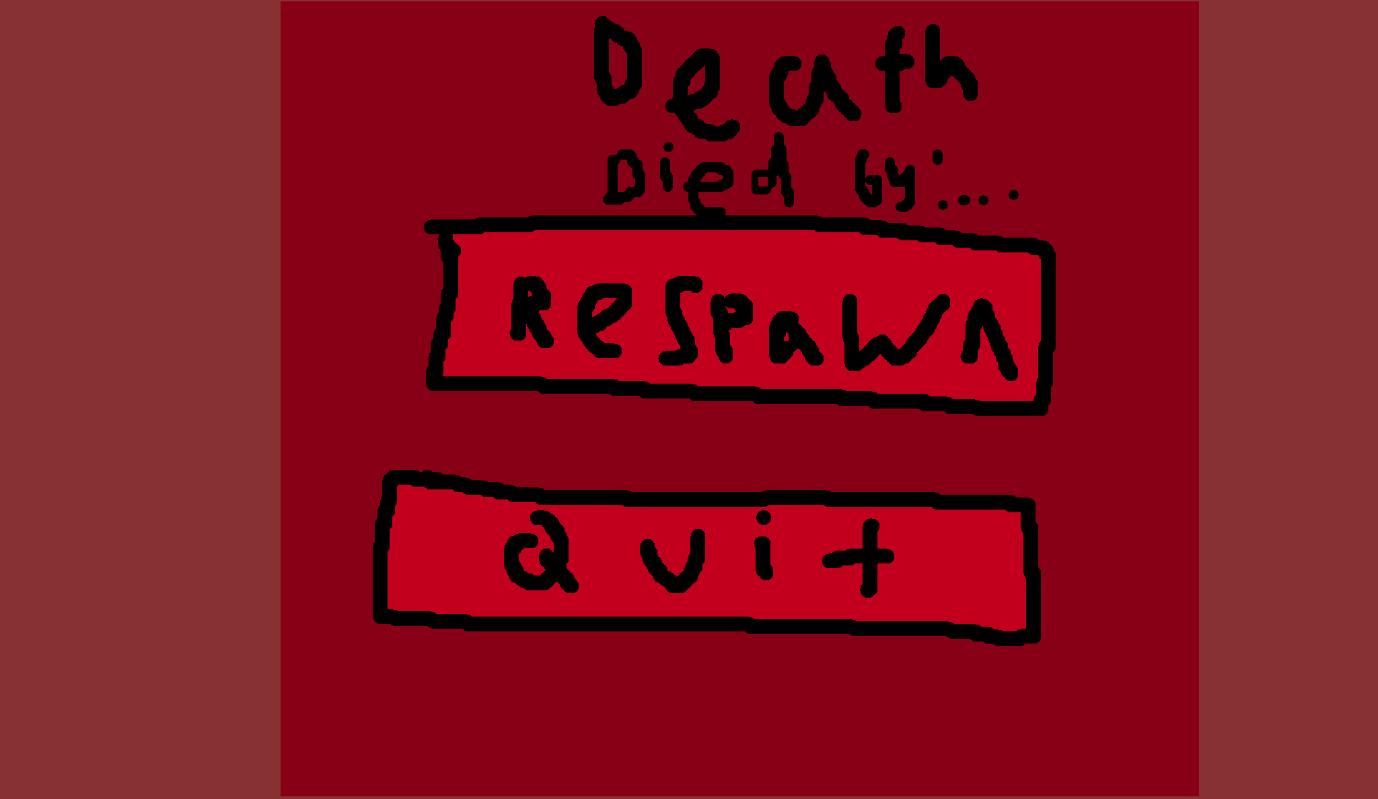 Death
Died by:...
Respawn
Quit